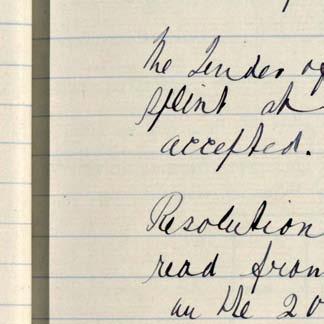 The Tender of
splint at
accepted.
Resolution
read from
on the 20